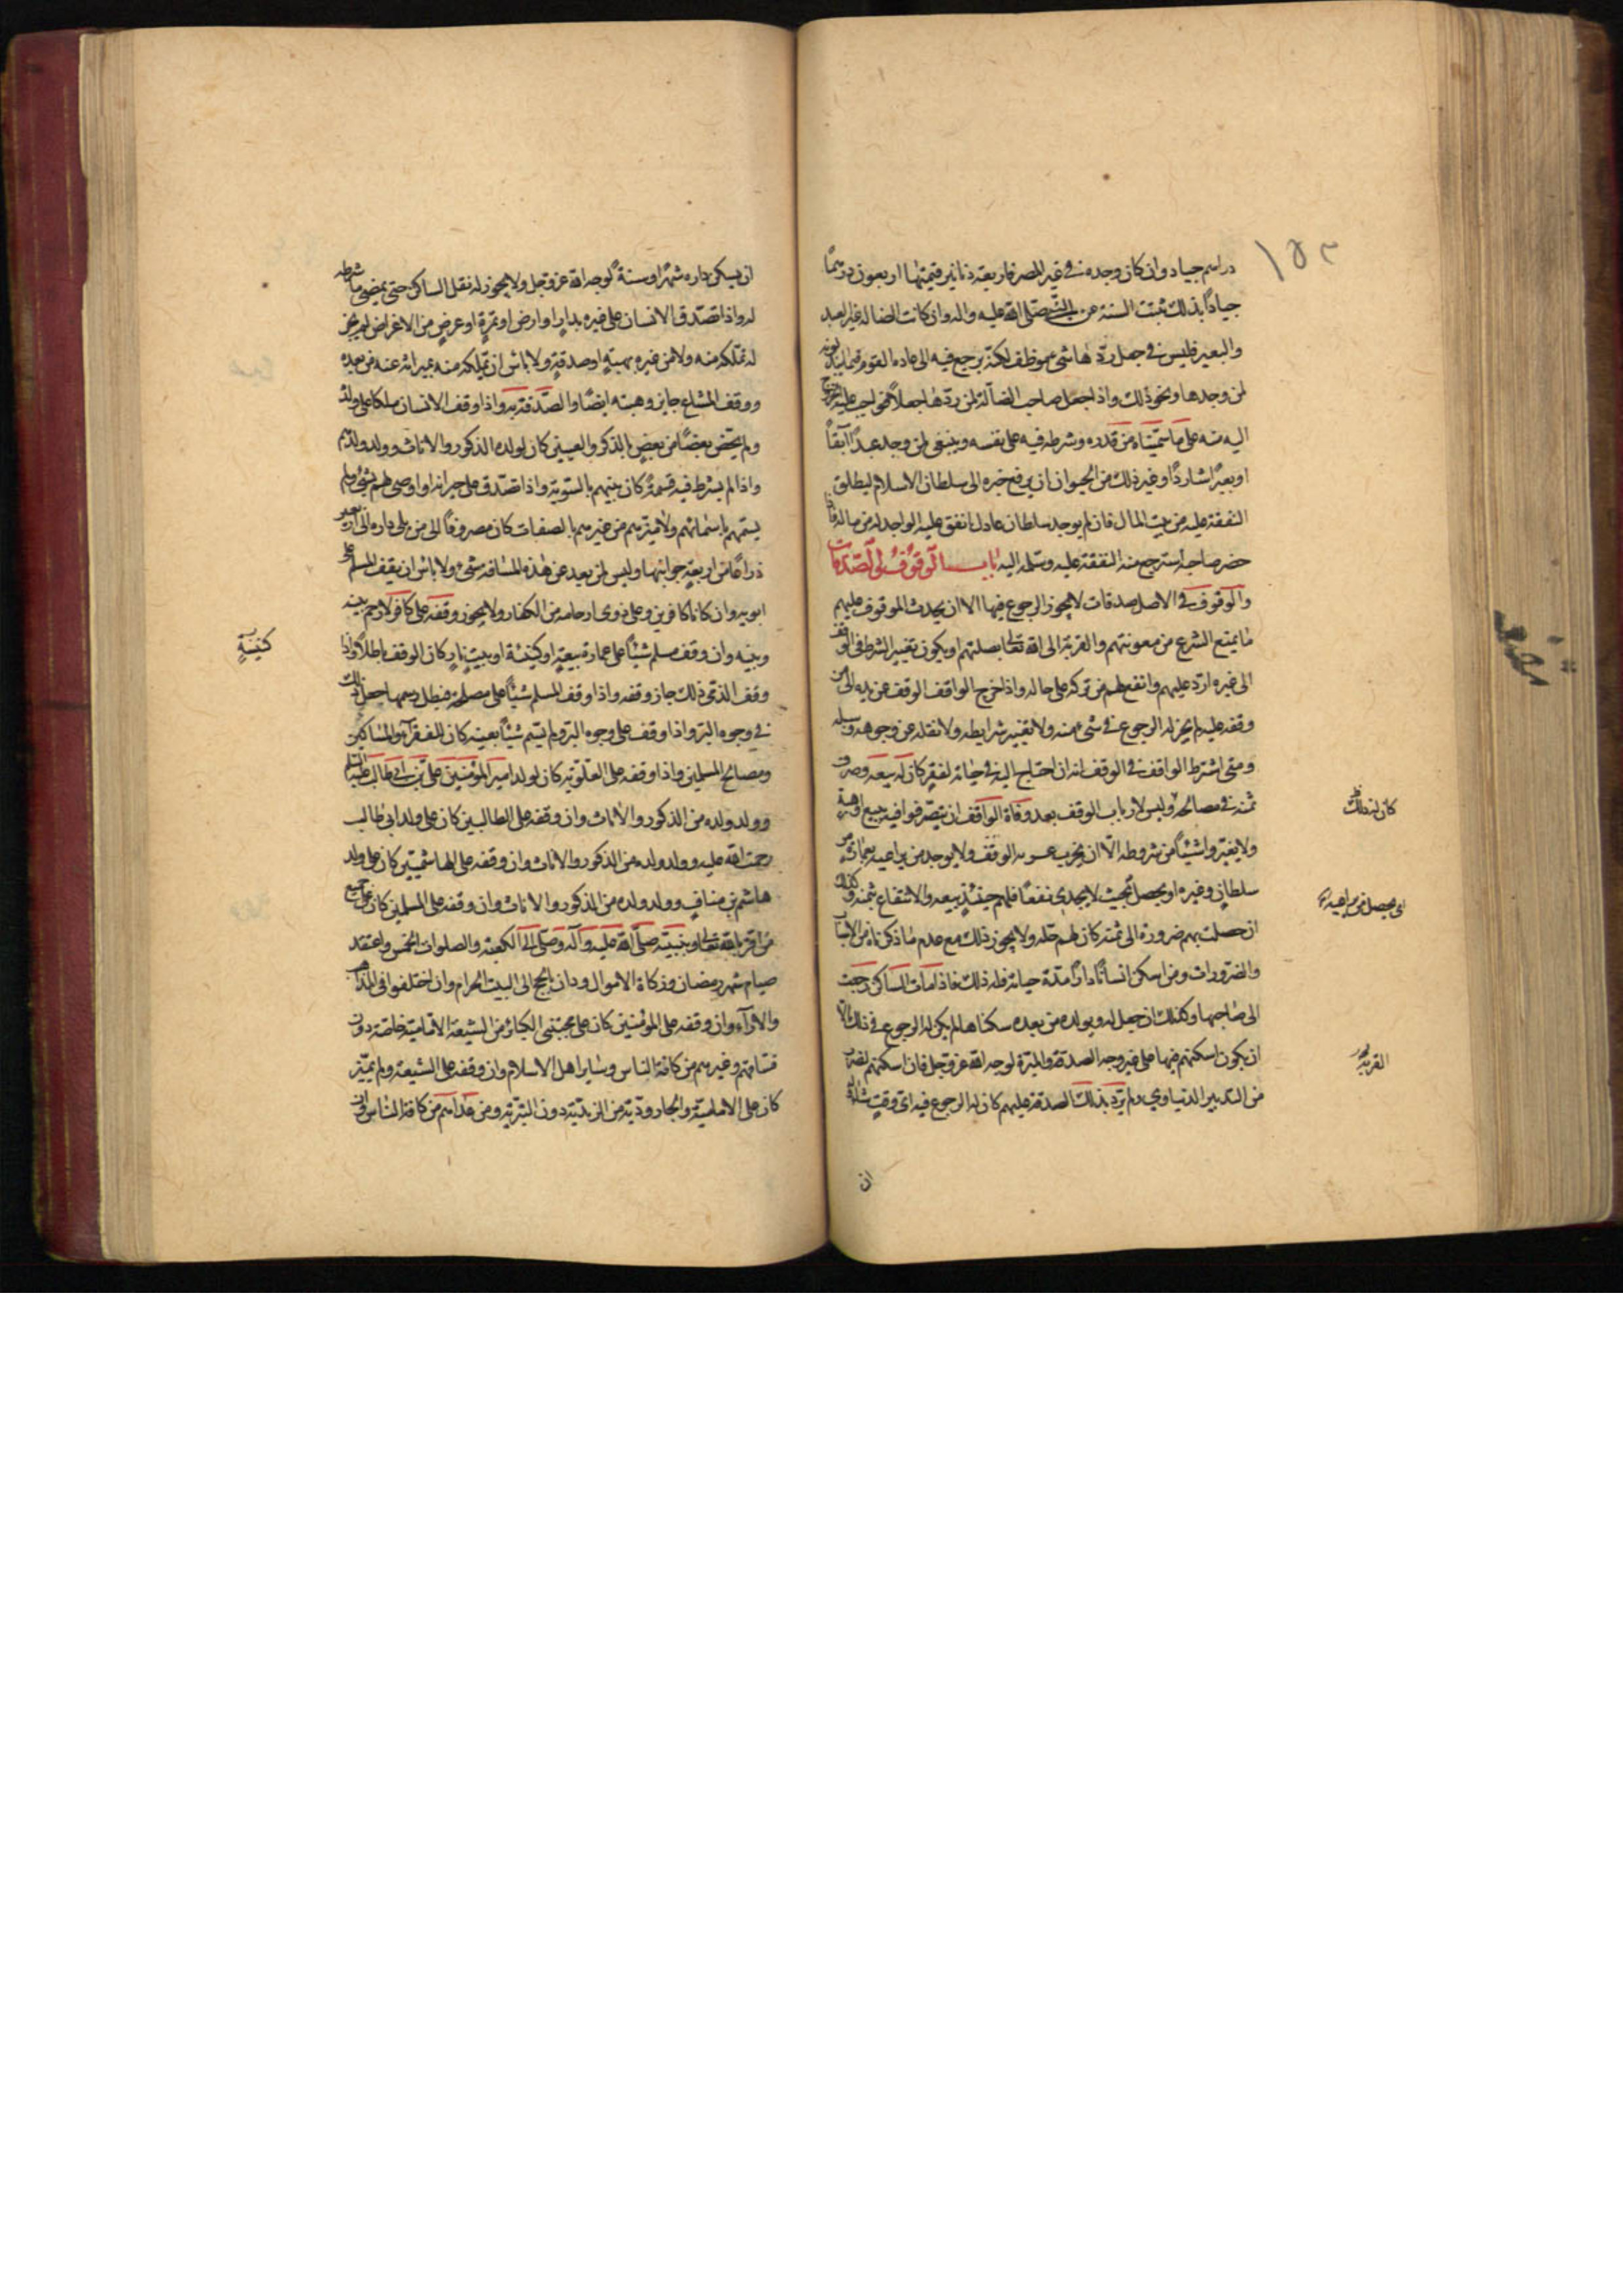 ١٥٣
دراهم جياد وان كان وجده في غير المصر فاربعة دنانير قيمتها اربعون درهما
جيادا بذلك ثبتت السنة عن النبي صلى الله عليه واله وان كانت الضالة غير العبد
والبعير فليس في جعل ردها شئ موظف لكنه يرجع فيه الى عادة القوم فيما يبذلونه
لمن وجدها ونحو ذلك واذا جعل صاحب الضالة لمن ردها جعلا فواجب عليه الخروج
اليه منه على ما سميناه من قدره وشرطه فيه على نفسه وينبغي لمن وجد عبدا آبقا
او بعيرا شاردا وغير ذلك من الحيوان ان يرفع خبره الى سلطان الاسلام ليطلق
النفقة عليه من بيت المال فان لم يوجد سلطان عادل انفق عليه الواجد له من ماله فاذا
حضر صاحبه استرجع منه النفقة عليه وسلمه اليه باب الوقوف والصدقات
والوقوف في الاصل صدقات لا يجوز الرجوع فيها الا ان يحدث الموقوف عليهم
ما يمنع الشرع من معونتهم والقربة الى الله تعالى بصلتهم او يكون تغيير الشرط في الوقف
الى غيره ارد عليهم وانفع لهم من تركه على حاله واذا اخرج الواقف الوقف عن يده الى من
وقفه عليه لم يجز له الرجوع في شئ منه ولا تغيير شرايطه ولا نقله عن وجوهه وسبله
ومتى اشترط الواقف في الوقف انه ان احتاج اليه في حياته لفقر كان له بيعه وصرف
ثمنه في مصالحه وليس لارباب الوقف بعد وفاة الواقف ان يتصرفوا فيه ببيع او هبة
ولا يغيروا شيئا من شروطه الا ان يخرب الوقف ولا يوجد من يراعيه بعمارة من
سلطان وغيره او يحصل بحيث لا يجدي نفعا فلهم حينئذ بيعه والانتفاع بثمنه وكذلك
ان حصلت بهم ضرورة الى ثمنه كان لهم حله ولا يجوز ذلك مع عدم ما ذكرناه من الاسباب
والضرورات ومن اسكن انسانا دارا مدة حياته فله ذلك فاذا مات الساكن رجعت
الى صاحبها وكذلك ان جعل له ولولده من بعده سكناها لم يكن له الرجوع في ذلك الا
ان يكون اسكنهم فيها على غير وجه الصدقة والمبرة لوجه الله عز وجل فان اسكنهم لضرب
من التدبير الدنياوي ولم يرد بذلك الصدقة عليهم كان له الرجوع فيه اي وقت شاء وله
ان
كان له ذلك
القربة
ان يسكن داره شهرا او سنة لوجه الله عز وجل ولا يجوز له نقل الساكن حتى يمضي ما شرطه
له واذا تصدق الانسان على غيره بدار او ارض او ثمرة او عرض من الاعراض لم يجز
له تملكه منه ولا من غيره بهبة او صدقة ولا باس ان يتملكه منه بميراثه عنه من بعده
ووقف المشاع جايز وهبته ايضا والصدقة به واذا وقف الانسان ملكا على ولده
ولم يخص بعضا من بعض بالذكر والتعيين كان لولده الذكور والاناث وولد ولدهم
واذا لم يشرط فيه قسمة كان بينهم بالسوية واذا تصدق على جيرانه او اوصى لهم بشئ ولم
يسمهم باسمائهم ولا ميزهم من غيرهم بالصفات كان مصروفا الى من يلي داره الى اربعين
ذراعا من اربعة جوانبها وليس لمن بعد عن هذه المسافة شئ ولا باس ان يقف المسلم على
ابويه وان كانا كافرين وعلى ذوي ارحامه من الكفار ولا يجوز وقفه على كافر لا رحم بينه
وبينه وان وقف مسلم شيئا على عمارة بيعة او كنيسة او بيت نار كان الوقف باطلا واذا
وقف الذمي ذلك جاز وقفه واذا وقف المسلم شيئا على مصلحة فبطل رسمها جعل ذلك
في وجوه البر واذا وقف على وجوه البر ولم يسم شيئا بعينه كان للفقراء والمساكين
ومصالح المسلمين واذا وقفه على العلوية كان لولد امير المؤمنين علي بن ابي طالب عليه السلم
وولد ولده من الذكور والاناث وان وقفه على الطالبيين كان على ولد ابي طالب
رحمت الله عليه وولد ولده من الذكور والاناث وان وقفه على الهاشميين كان على ولد
هاشم بن مناف وولد ولده من الذكور والاناث وان وقفه على المسلمين كان على جميع
من اقر بالله تعالى وبنبيه صلى الله عليه وآله وصلى الى الكعبة والصلوات الخمس واعتقد
صيام شهر رمضان وزكاة الاموال ودان بالحج الى البيت الحرام وان اختلفوا في المذاهب
والآراء وان وقفه على المؤمنين كان على مجتنبي الكبائر من الشيعة الامامية خاصة دون
فساقهم وغيرهم من كافة الناس وساير اهل الاسلام وان وقفه على الشيعة ولم يميز
كان على الامامية والجارودية من الزيدية دون البترية ومن عداهم من كافة الناس وان
كنيسة